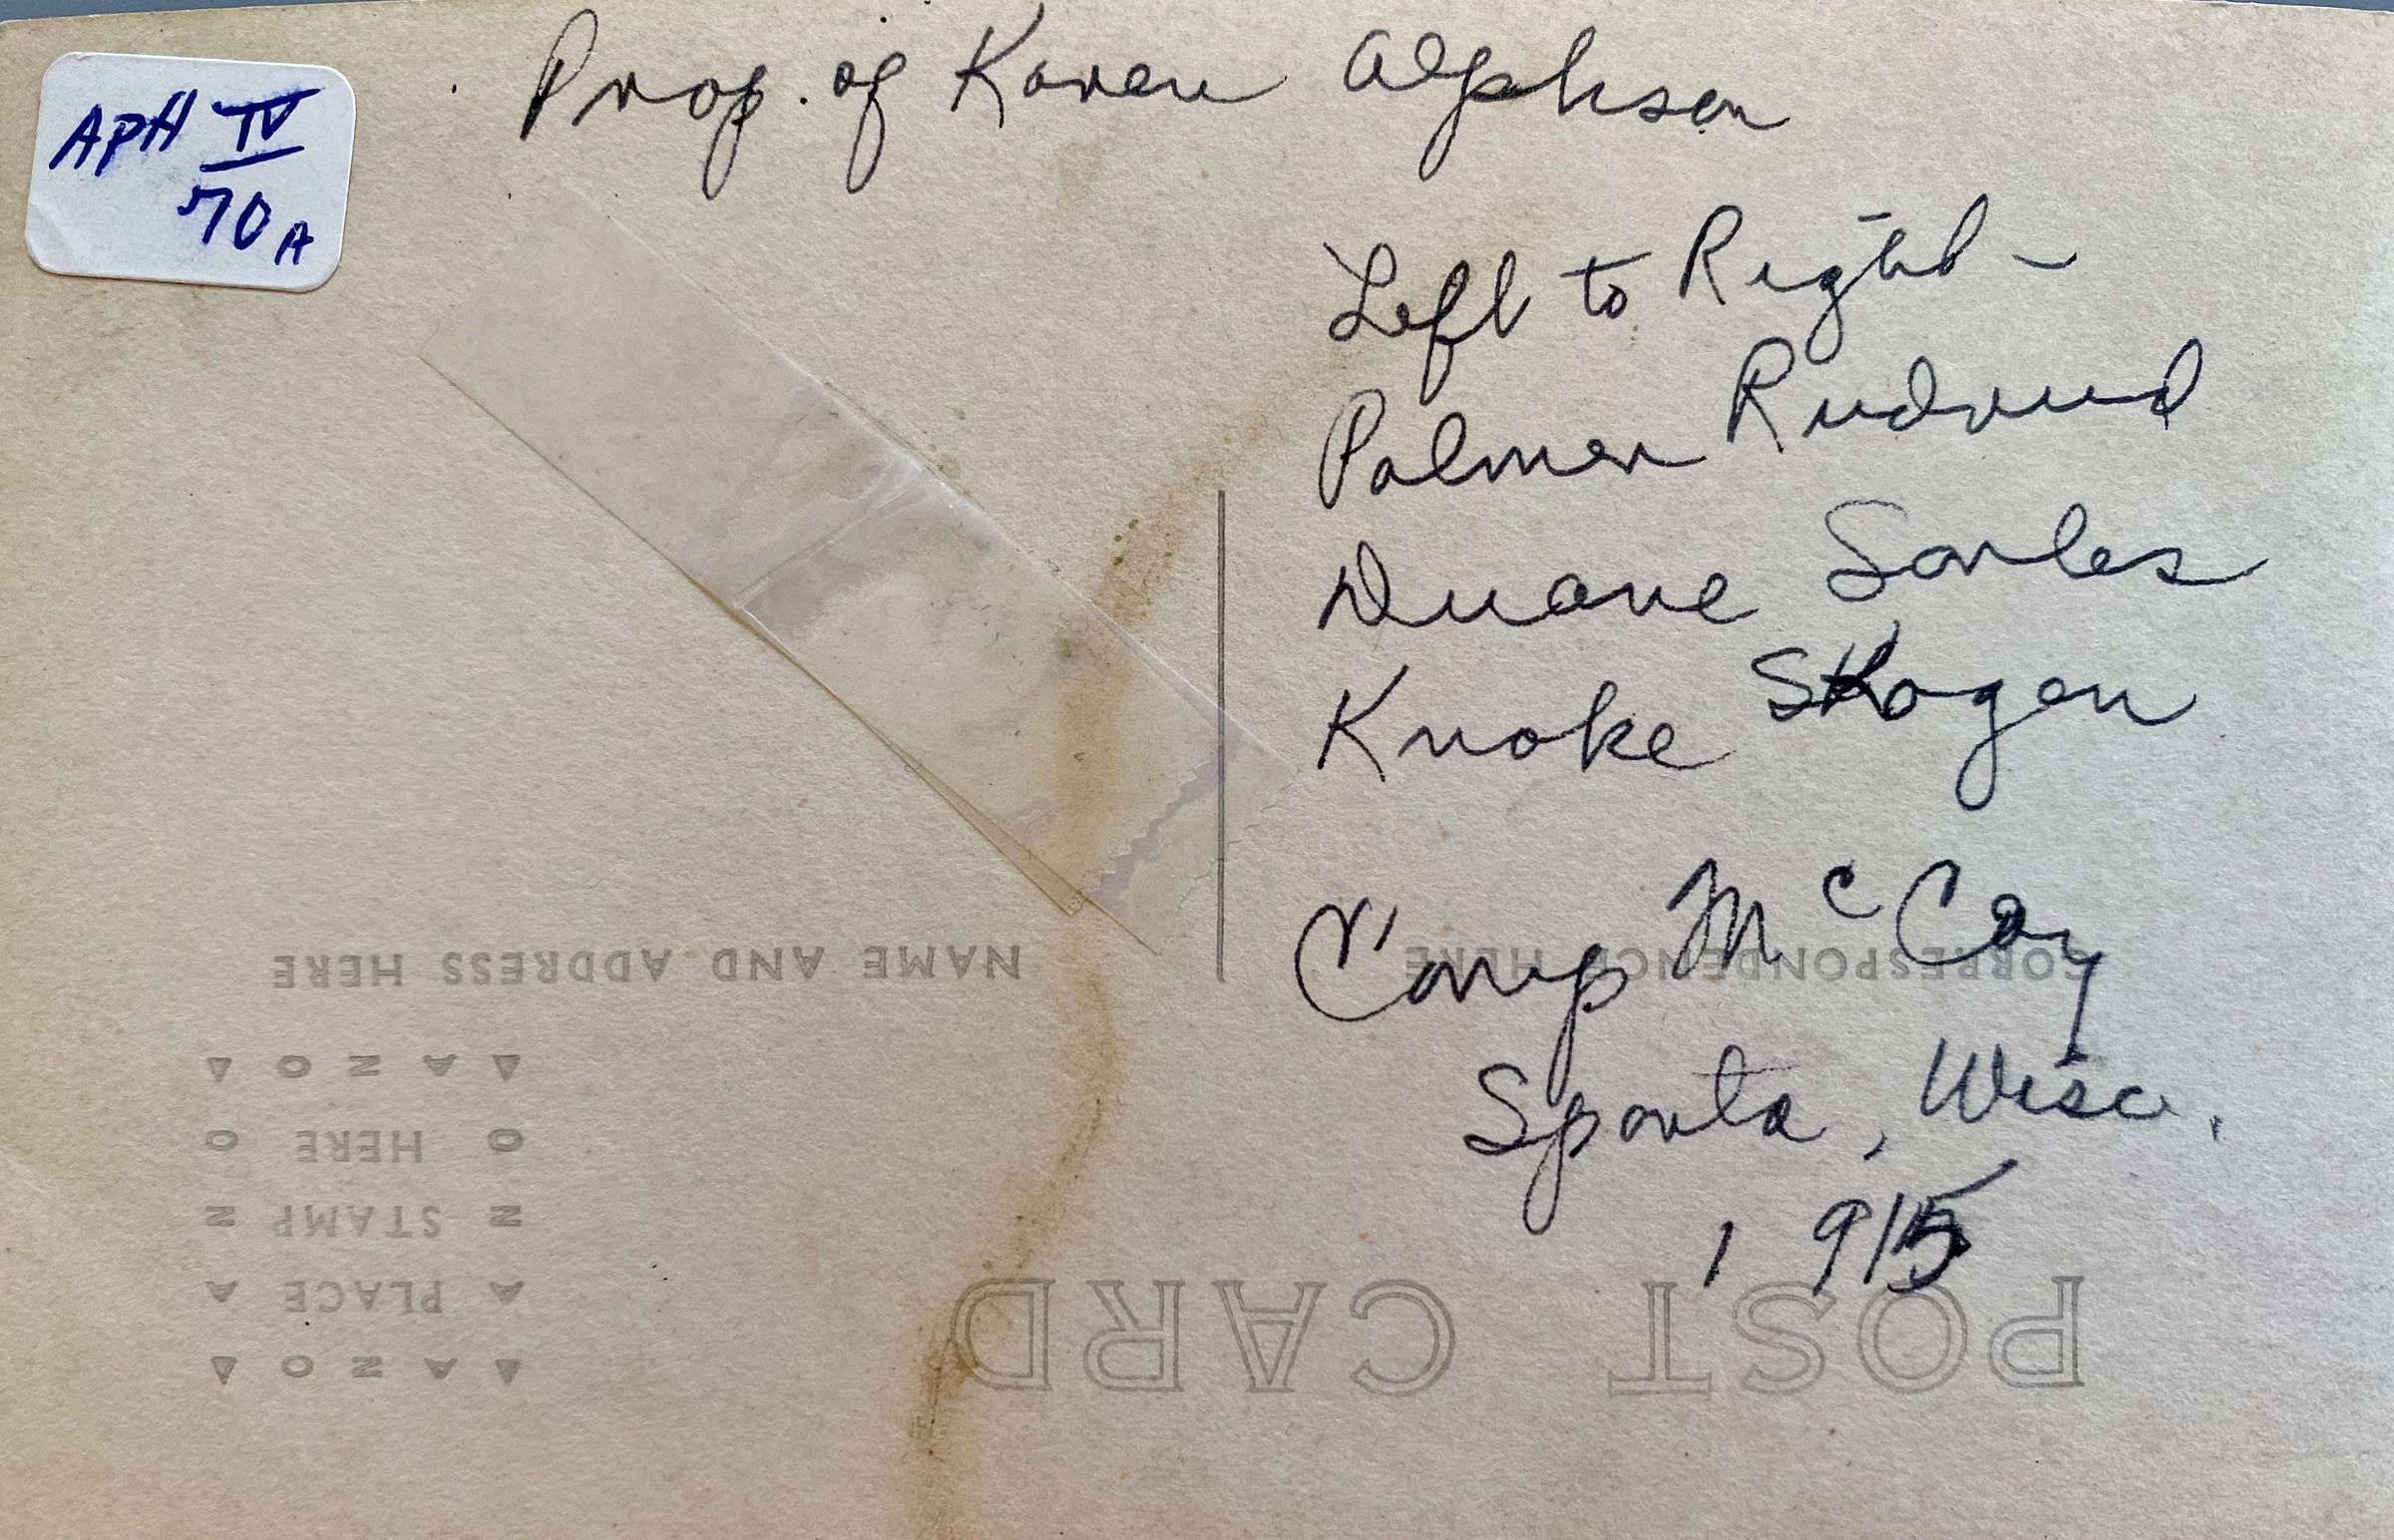 APH IV
70A
Prop. of Karen Alphson
Left to Right -
Palmer Rudrud
Duane Sorles
Knoke Skogen
Camp McCoy
Sparta, Wisc.
1915
CORRESPONDENCE HERE
NAME AND ADDRESS HERE
POST CARD
AZO
PLACE
STAMP
HERE
AZO